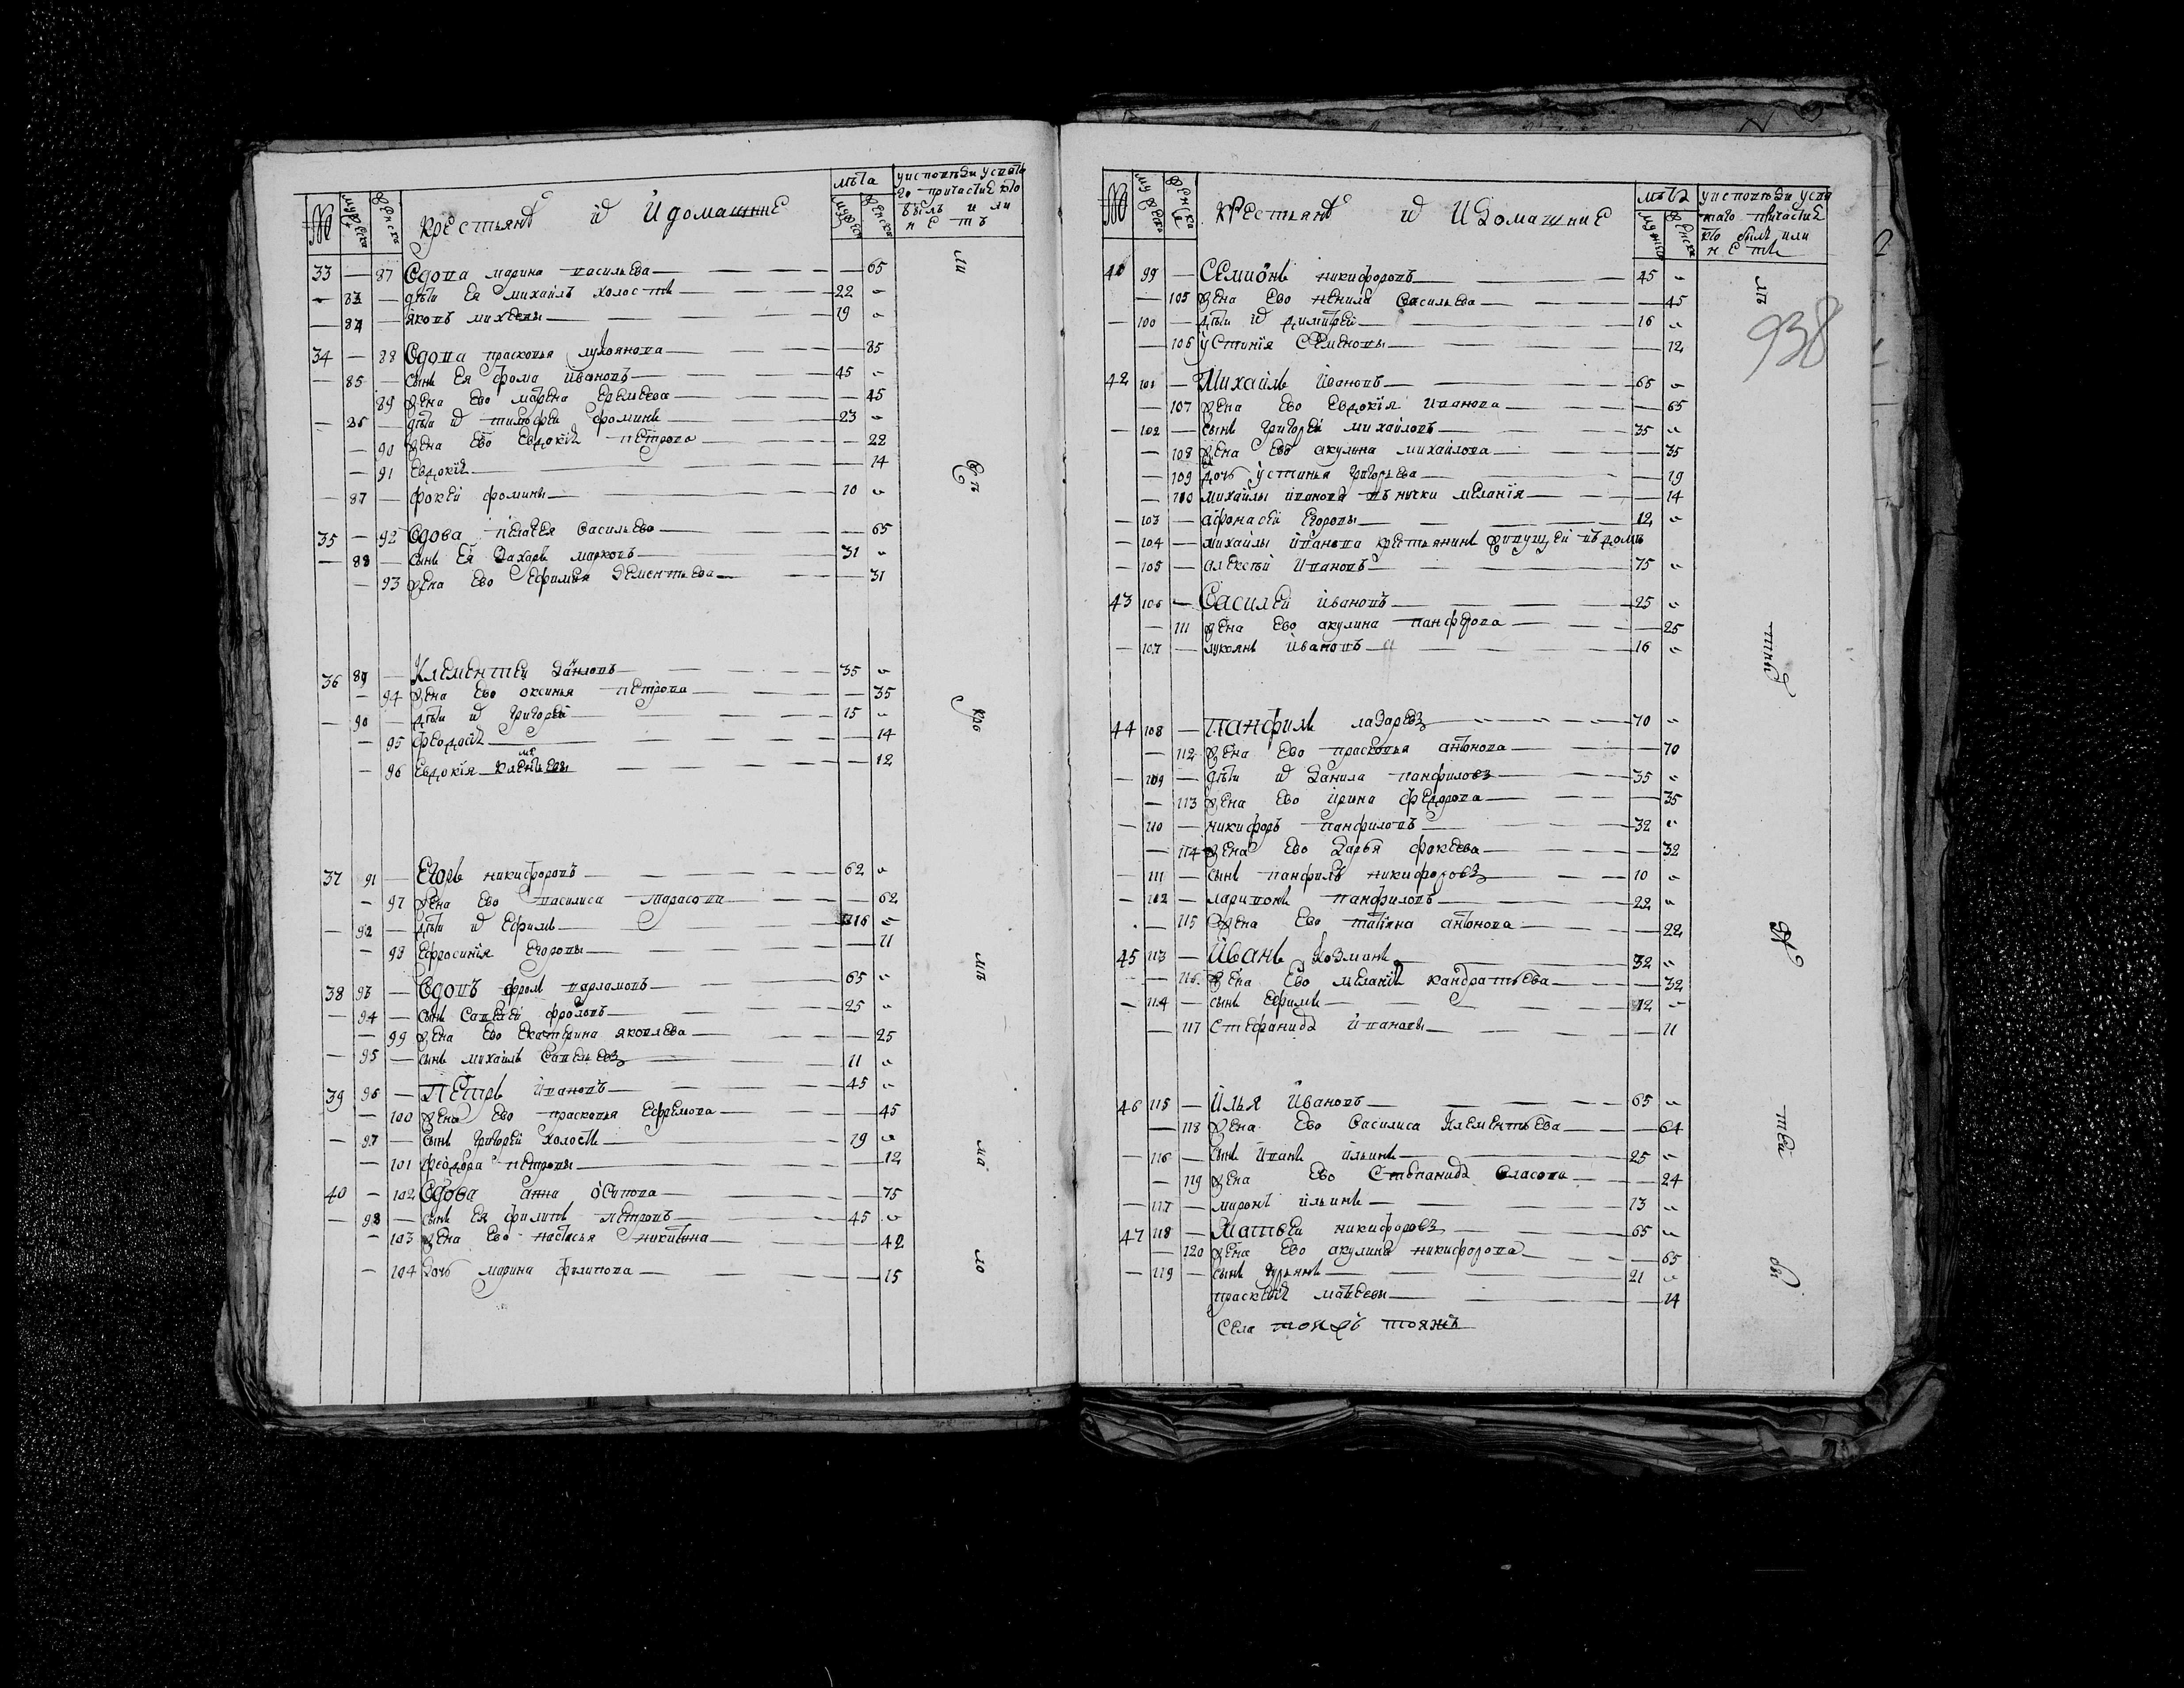 № мужеска женска крестьянѣ и и домашние лѣта мужеска женска у исповѣди у свято
го причастия кто
былъ или
нетъ
33 — 87 Вдова марина васильева — 65
— 83 — дѣти ея михайлъ холостъ — 22
— 84 — яковъ михеевы — 19
34 — 88 Вдова прасковья лукоянова — 85
— 85 — сынъ ея фома ивановъ — 45
89 жена ево матрена еремеева — 45
— 86 — дѣти и тимофей фоминъ — 23
— 90 жена ево евдокия петрова — 22
— 91 евдокия — 14
— 87 — фокей фомины — 10
35 — 92 Вдова пелагея васильева — 65
— 88 — сынъ ея захаръ марковъ — 31
— 93 жена ево ефимия дементьева — 31
36 89 — Клементей даниловъ — 35
— 94 жена ево аксинья петрова — 35
— 90 — дѣти и григорей — 15
— 95 феодосия — 14
— 96 евдокия клементьевы — 12
37 91 — Егоръ никифоровъ — 62
— 97 жена ево василиса тарасова — 62
— 92 — дѣти и ефимъ — 16
— 98 ефросиния егоровы — 11
38 93 — Вдовъ фролъ варламовъ — 65
— 94 — сынъ савелей фроловъ — 25
— 99 жена ево екатерина яковлева — 25
— 95 — сынъ михайлъ савельевъ — 11
39 96 — Петръ ивановъ — 45
— 100 жена ево прасковья ефремова — 45
— 97 — сынъ григорей холостъ — 19
— 101 феодора петровы — 12
40 — 102 Вдова анна осипова — 75
— 98 — сынъ ея филипъ петровъ — 45
— 103 жена ево настасья никитина — 42
— 104 дочь марина филипова — 15
№ мужеска женска крестьянѣ и и домашние лѣта мужеска женска у исповѣди у свя
таго причастия
кто былъ или
нетъ
938
41 99 — Семионъ никифоровъ — 45
— 105 жена ево ненила васильева — 45
— 100 — дѣти и димитрей — 16
— 106 устиния семеновы — 12
42 101 — Михайлъ ивановъ — 65
— 107 жена ево евдокия иванова — 65
— 102 — сынъ григорей михайловъ — 35
— 108 жена ево акулина михайлова — 35
— 109 дочь устинья григорьева — 19
— 110 михайлы иванова внучки мелания — 14
— 103 — афонасей егоровы — 12
— 104 — михайлы иванова крестьянинъ живущей въ доме
— 105 — алексей ивановъ — 75
43 106 — Василей ивановъ — 25
— 111 жена ево акулина панферова — 25
— 107 — лукоянъ ивановъ — 16
44 108 — Панфилъ лазаревъ — 70
— 112 жена ево прасковья антонова — 70
— 109 — дѣти и данила панфиловъ — 35
— 113 жена ево ирина федорова — 35
— 110 — никифоръ панфиловъ — 32
— 114 жена ево дарья фокеева — 32
— 111 — сынъ панфилъ никифоровъ — 10
— 112 — ларивонъ панфиловъ — 22
— 115 жена ево татияна антонова — 22
45 113 — Иванъ козминъ — 32
— 116 жена ево мелания кандратьева — 32
— 114 — сынъ ефимъ — 12
— 117 стефанида ивановы — 11
46 115 — Илья ивановъ — 65
— 118 жена ево василиса клементьева — 64
— 116 — сынъ иванъ ильинъ — 25
— 119 жена ево степанида власова — 24
— 117 — миронъ ильинъ — 13
47 118 — Матвей никифоровъ — 65
— 120 жена ево акулина никифорова — 65
— 119 — сынъ гурьянъ — 21
прасковия матвеевы — 14
села